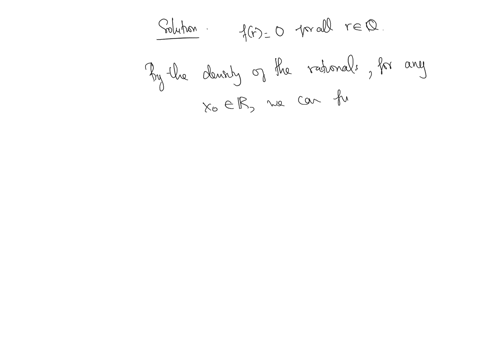 Solution. f(r)=0 for all r∈ℚ.
By the density of the rationals, for any
x₀∈ℝ, we can fi